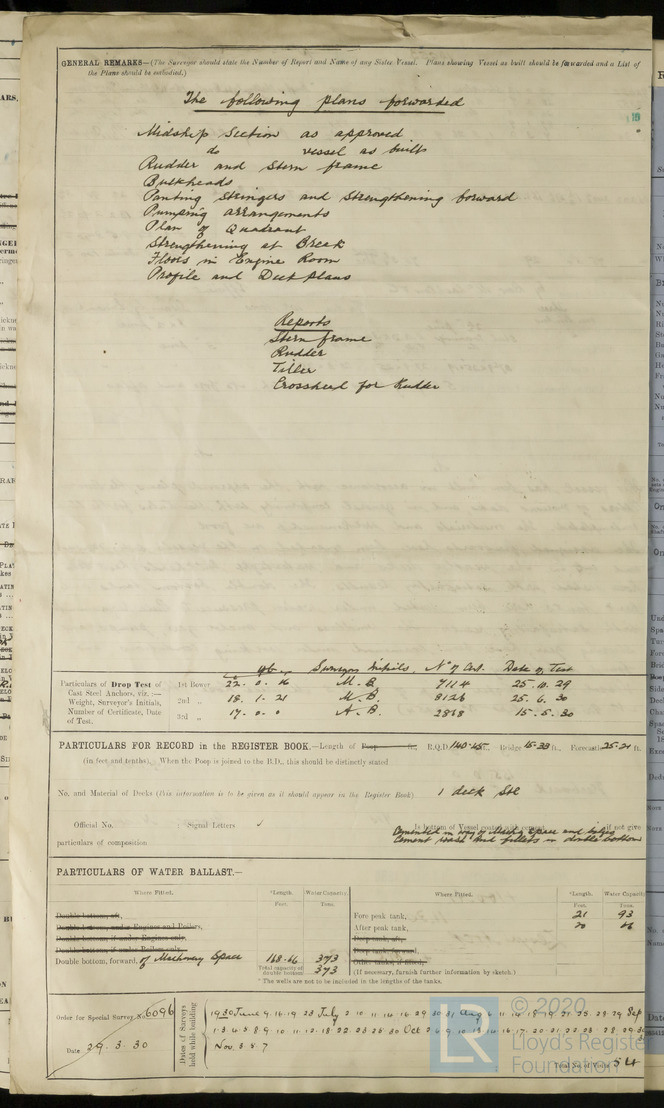 GENERAL REMARKS—(The Surveyor should state the Number of Report and Name of any Sister Vessel. Plans showing Vessel as built should be forwarded and a List of
the Plans should be embodied.)
The following plans forwarded
Midship Section as approved
do vessel as built
Rudder and Stern frame
Bulkheads
Panting Stringers and Strengthening forward
Pumping arrangements
Plan of Quadrant
Strengthening at Break
Floors in Engine Room
Profile and Deck plans
Reports
Stern frame
Rudder
Tiller
Crosshead for Rudder
Surveyors Initials, No of Cert. Date of Test
Particulars of Drop Test of 1st Bower 22. 0. 16 M. B. 7114 25. 10. 29
Cast Steel Anchors, viz.:—
Weight, Surveyor's Initials, 2nd „ 18. 1. 21 M. B. 8126 25. 6. 30
Number of Certificate, Date 3rd „ 17. 0. 0 A. B. 2868 15. 5. 30
of Test.
PARTICULARS FOR RECORD in the REGISTER BOOK.—Length of Poop ft., R.Q.D. ft., Bridge ft., Forecastle 25.21 ft.
(in feet and tenths). When the Poop is joined to the B.D., this should be distinctly stated
No. and Material of Decks (this information is to be given as it should appear in the Register Book) 1 deck Stl
Official No. Signal Letters ✓ Is bottom of Vessel coated with cement if not give
particulars of composition
Cemented in way of Machy Space and bilges
Cement wash and fillets in double bottom
PARTICULARS OF WATER BALLAST.—
Where Fitted. *Length. Water Capacity. Where Fitted. *Length. Water Capacity
Feet. Tons. Feet. Tons.
Double bottom, aft, Fore peak tank, 21 93
Double bottom, under Engines and Boilers, After peak tank, 20
Double bottom, if under Engines only, Deep tank, aft,
Double bottom, if under Boilers only, Deep tank, forward,
Double bottom, forward, of Machinery Space 168.66 373
Total capacity of double bottom 373 (If necessary, furnish further information by sketch.)
* The wells are not to be included in the lengths of the tanks.
Order for Special Survey No. 6096
Date 29. 3. 30
Dates of Surveys held while building
1930 June 9 16 19 25 July 2 10 11 14 16 29 30 31 Aug 6 11 14 18 19 21 25 28 29 Sep
1 3 4 5 8 9 10 11 12 18 22 23 25 30 Oct 2 6 9 10 13 14 16 17 20 21 22 23 28 29 30
Nov 3 5 7
Total No. of Visits 54
© 2020
LR
Lloyd's Register
Foundation